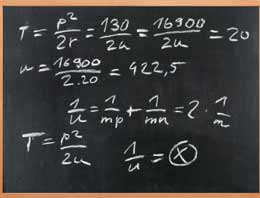 T = p²/2r = 130/2u = 16900/2u = 20
u = 16900/2.20 = 422,5
1/u = 1/mp + 1/mn = 2 · 1/n
T = p²/2u
1/u = ⓧ